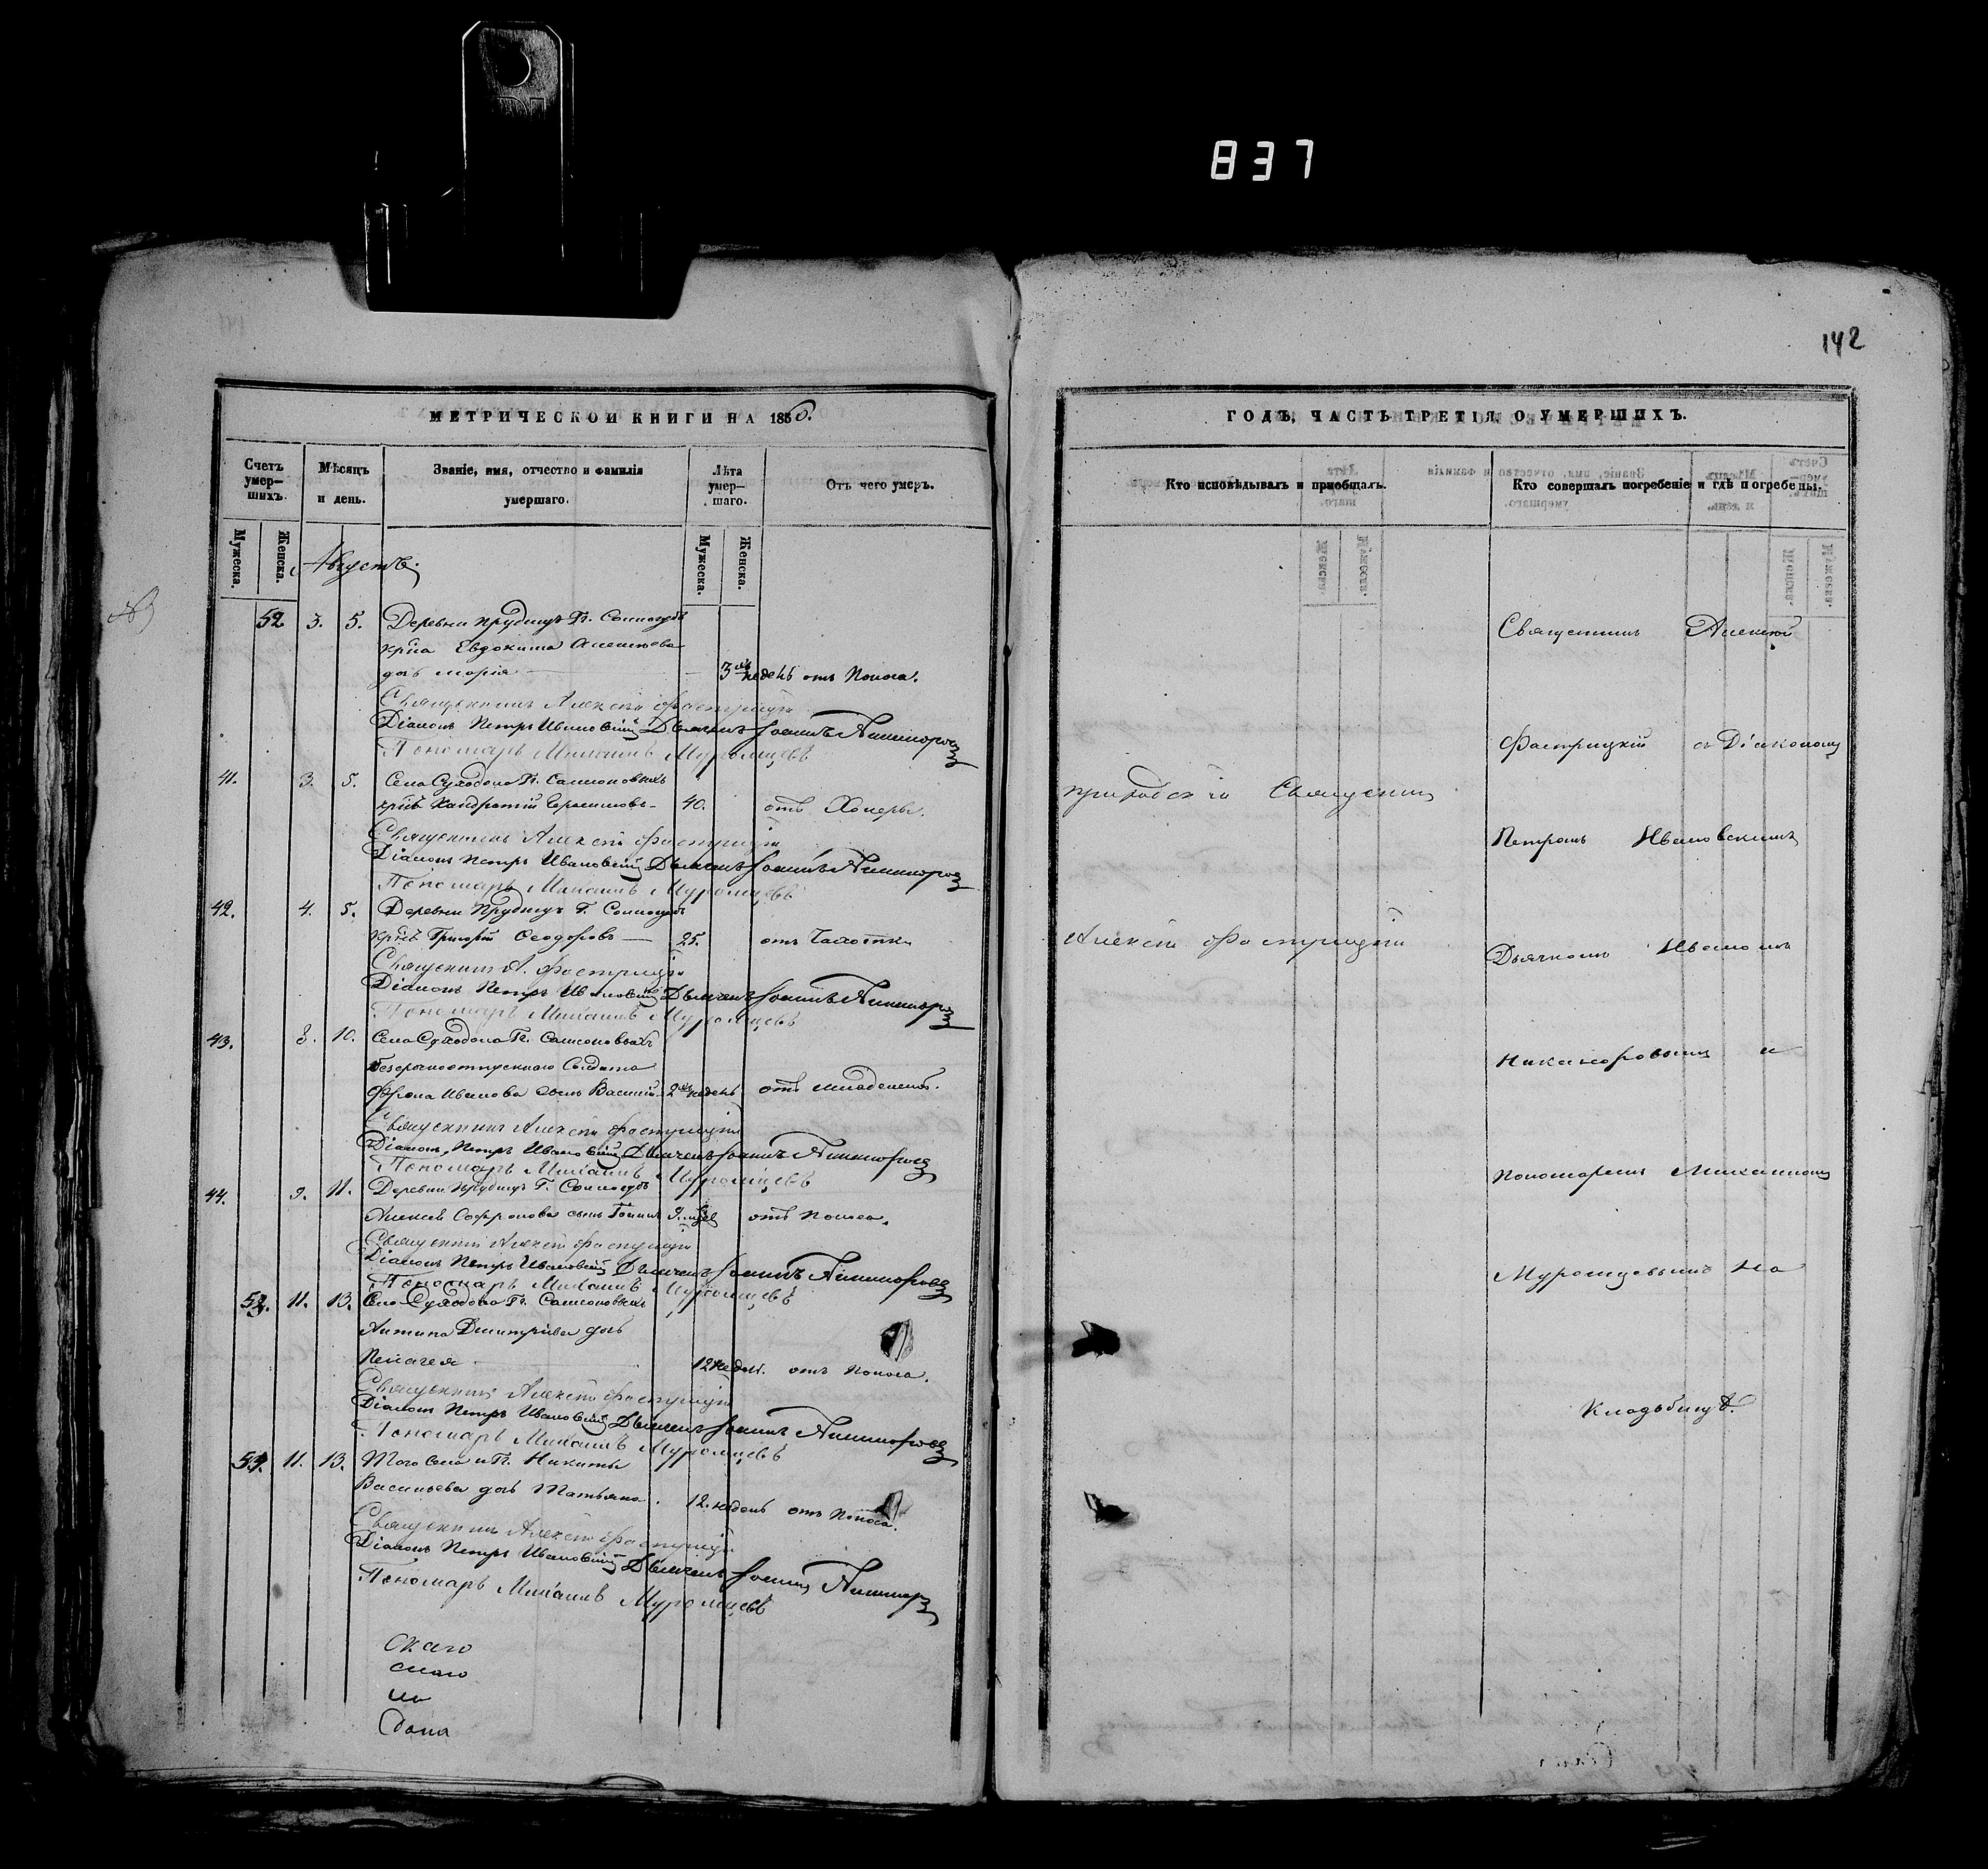 837
142
МЕТРИЧЕСКОЙ КНИГИ НА 1860.
Счетъ умер-шихъ.
Мѣсяцъ и день.
Званіе, имя, отчество и фамилія умершаго.
Лѣта умер-шаго.
Отъ чего умеръ.
Мужеска.
Женска.
Мужеска.
Женска.
Августъ.
52 3. 5. Деревни Прудищъ Гг.
Евдокима Алексѣева
дочь Марія 3 недель отъ Поноса.
Священникъ Алексѣй
Діаконъ Петръ Ивановскій Дьячекъ Іоаннъ Никаноровъ
Пономарь Михаилъ Муромцевъ
41. 3. 5. Села Суходола Гг. Самсоновыхъ
Кандратій Герасимовъ 40. отъ Холеры.
Священникъ Алексѣй
Діаконъ Петръ Ивановскій Дьячекъ Іоаннъ Никаноровъ
Пономарь Михаилъ Муромцевъ
42. 4. 5. Деревни Прудищъ Г.
Григорій Ѳеодоровъ 25. отъ Чахотки
Священникъ А.
Діаконъ Петръ Ивановскій Дьячекъ Іоаннъ Никаноровъ
Пономарь Михаилъ Муромцевъ
43. 8. 10. Села Суходола Гг. Самсоновыхъ
безсрочноотпускнаго Солдата
Фрола Иванова сынъ Василій 2 недель отъ младенческ.
Священникъ Алексѣй
Діаконъ Петръ Ивановскій Дьячекъ Іоаннъ Никаноровъ
Пономарь Михаилъ Муромцевъ
44. 9. 11. Деревни Прудищъ Г.
Алексѣя Софронова сынъ 9. отъ Поноса.
Священникъ Алексѣй
Діаконъ Петръ Ивановскій Дьячекъ Іоаннъ Никаноровъ
Пономарь Михаилъ Муромцевъ
53. 11. 13. Села Суходола Гг. Самсоновыхъ
Антипа Дмитріева дочь
Пелагея 12 недель. отъ Поноса.
Священникъ Алексѣй
Діаконъ Петръ Ивановскій Дьячекъ Іоаннъ Никаноровъ
Пономарь Михаилъ Муромцевъ
54. 11. 13. Того Села и Гг. Никиты
Васильева дочь Татьяна. 12. недель отъ Поноса.
Священникъ Алексѣй
Діаконъ Петръ Ивановскій Дьячекъ Іоаннъ
Пономарь Михаилъ Муромцевъ
ГОДЪ, ЧАСТЬ ТРЕТІЯ, О УМЕРШИХЪ.
Кто исповѣдывалъ и пріобщалъ.
Кто совершалъ погребеніе и гдѣ погребены.
приходскій Священникъ
Алексѣй
Священникъ Алексѣй
съ Діакономъ
Петромъ Ивановскимъ
Дьячкомъ Иваномъ
Никаноровымъ и
Пономаремъ Михаиломъ
Муромцевымъ На
Кладбищѣ.